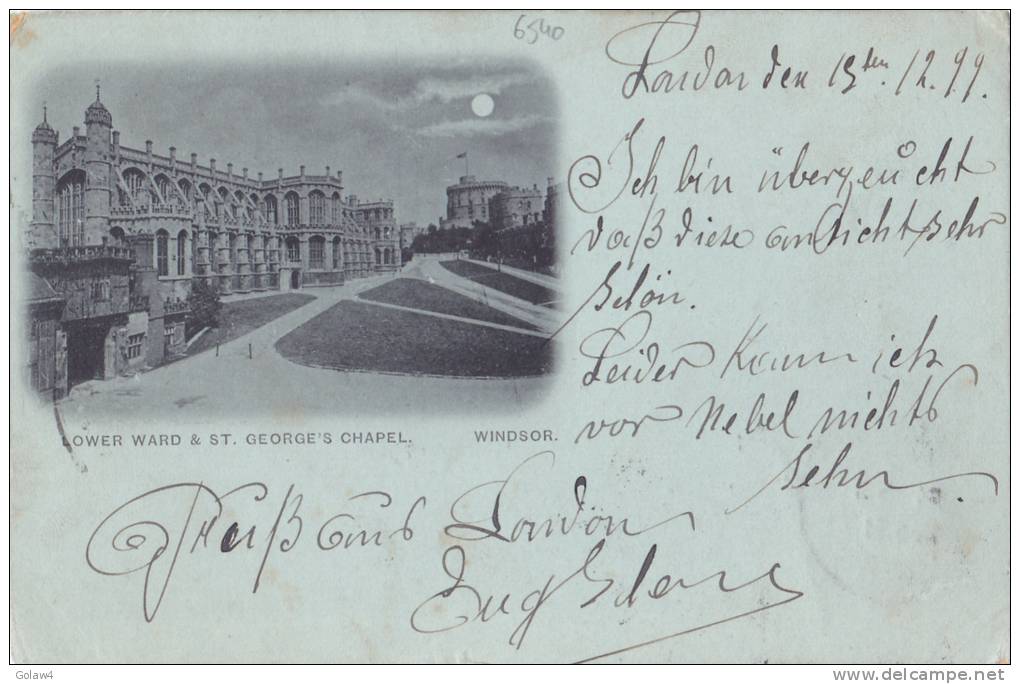 6540
London den 15ten. 12. 99.
Ich bin überzeucht
daß diese ansicht sehr
schön.
Leider kann ich
vor Nebel nichts
sehn.
LOWER WARD & ST. GEORGE'S CHAPEL. WINDSOR.
Gruß aus London
Eug
Golaw4
www.delcampe.net